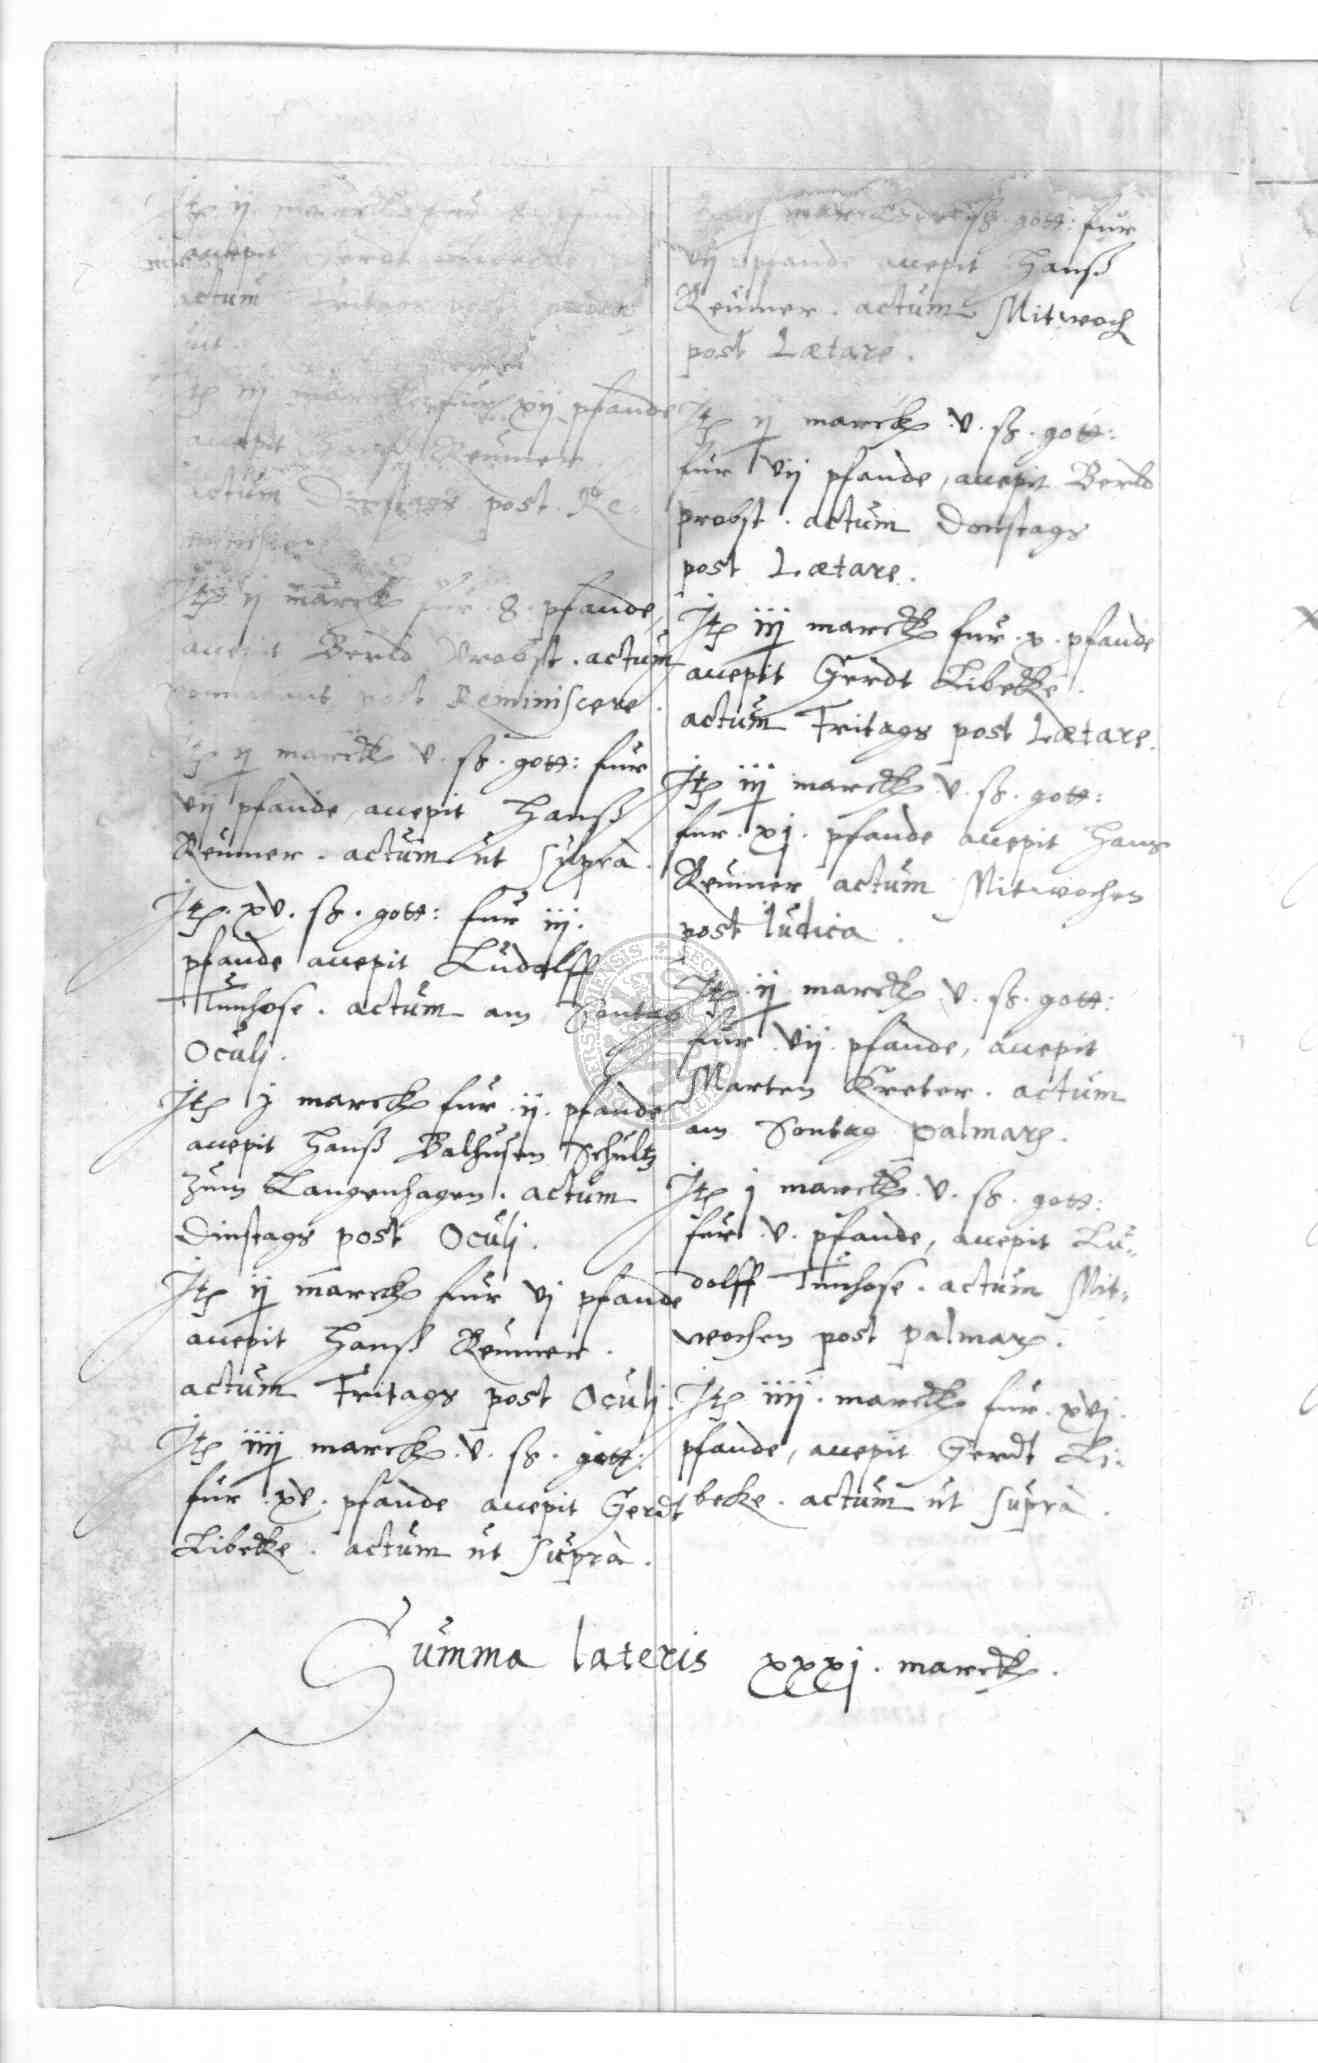 Itp ij marck fur 8 pfande
accepit Gerdt
actum Fritags post
ut
Itp iij marck fur xij pfande
accepit Hanß Reumer
actum Dinstags post Re-
miniscere
Itp ij marck fur .8. pfande,
accepit Berld Probst . actum
post Reminiscere .
Itp ij marck v . ß . gott: fur
vij pfande, accepit Hanß
Reumer . actum ut supra .
Itp . xv . ß . gott: fur iij .
pfande accepit Ludolff
Tunhose . actum am Sontag
Oculj .
Itp j marck fur .ij. pfande
accepit Hanß Balhusen Schultz
zum Langenhagen . actum
Dinstags post Oculj .
Itp ij marck fur vj pfande
accepit Hanß Reumer .
actum Fritags post Oculj .
Itp iiij marck . v . ß . gott:
fur . xv . pfande accepit Gerdt
Libecke . actum ut supra .
marck ß . gott: fur
vij pfande accepit Hanß
Reumer . actum Mitwoch
post Lætare .
Itp ij marck .v. ß . gott:
fur vij pfande, accepit Berld
probst . actum Donstags
post Lætare .
Itp iij marck fur . x . pfande
accepit Gerdt Libecke .
actum Fritags post Lætare .
Itp iij marck .v. ß . gott:
fur . xj . pfande accepit Hans
Reumer actum Mitwochen
post Iudica .
Itp . ij marck .v. ß . gott:
fur . vij . pfande, accepit
Marten Kreter . actum
am Sontag palmarum .
Itp j marck . v . ß . gott:
fur . v . pfande, accepit Lu-
dolff Tunhose . actum Mit-
wochen post palmarum .
Itp iiij . marck fur . xvj .
pfande, accepit Gerdt Li-
becke . actum ut supra .
Summa lateris xxxj . marck .